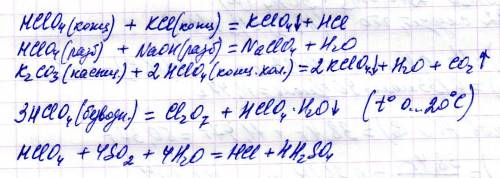 HClO₄(конц) + KCl(конц) = KClO₄↓ + HCl
HClO₄(разб) + NaOH(разб) = NaClO₄ + H₂O
K₂CO₃(насыщ) + 2HClO₄(конц. хол.) = 2KClO₄↓ + H₂O + CO₂↑
3HClO₄(безводн.) = Cl₂O₇ + HClO₄·H₂O↓ (t° 0...20°C)
HClO₄ + 4SO₂ + 4H₂O = HCl + 4H₂SO₄